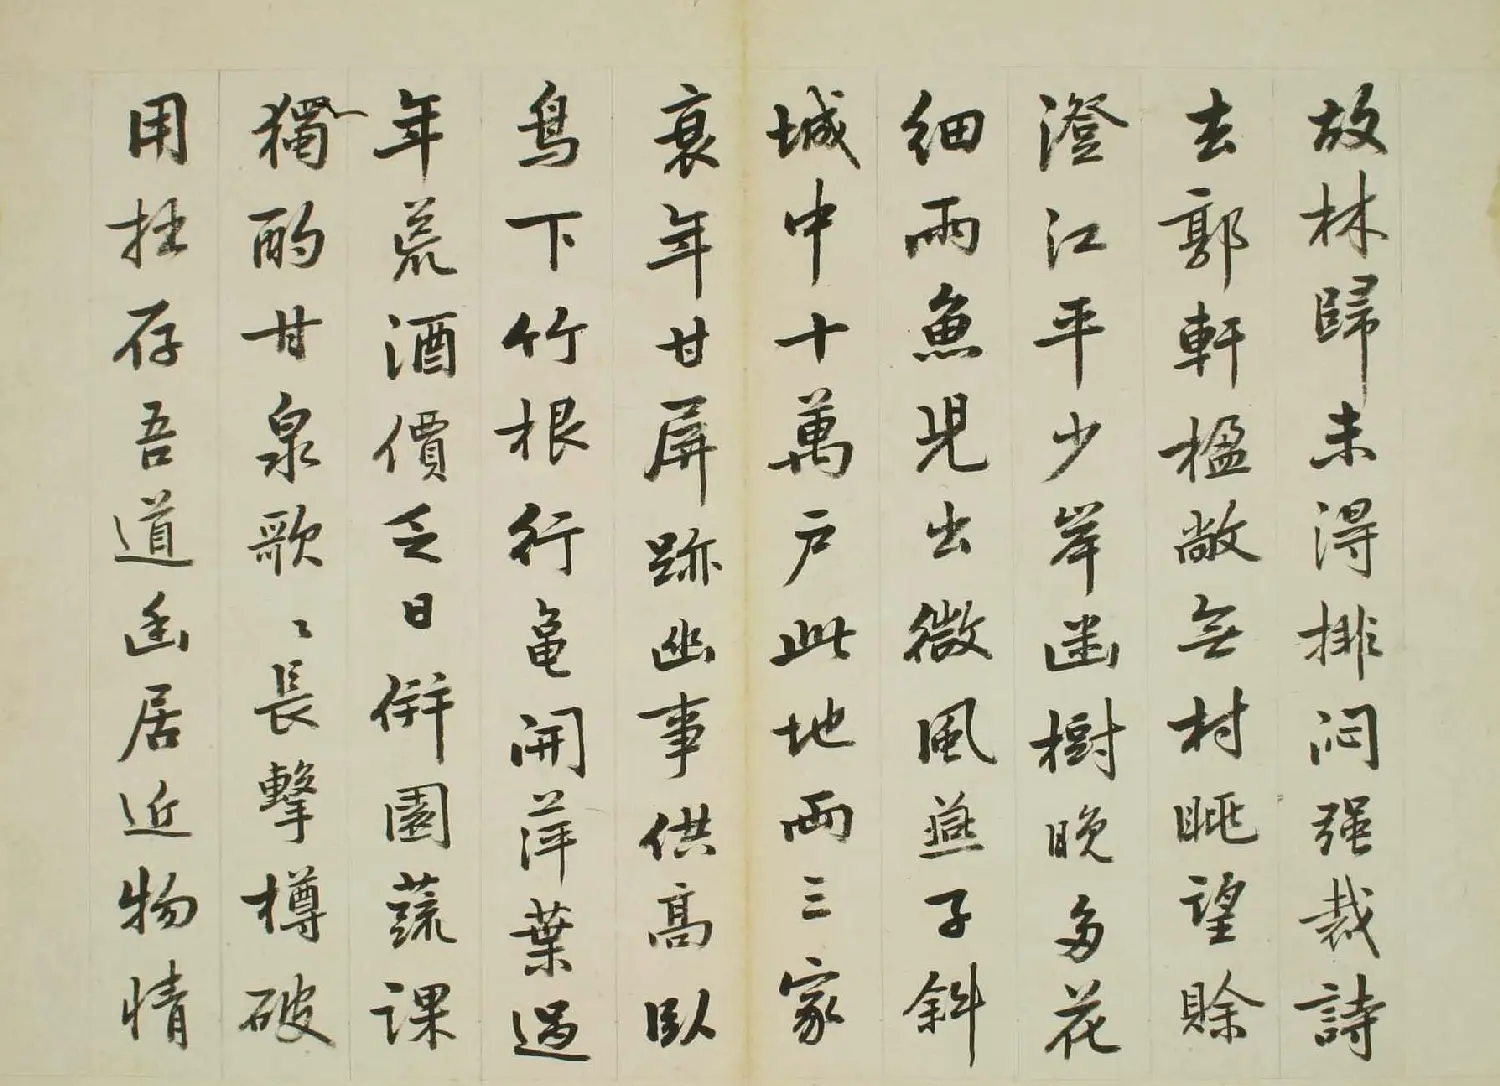 故林歸未得排悶强裁詩
去郭軒楹敞無村眺望賒
澄江平少岸幽樹晚多花
細雨魚兒出微風燕子斜
城中十萬戶此地兩三家
衰年甘屏跡幽事供高臥
鳥下竹根行龜開萍葉過
年荒酒價乏日併園蔬課
獨酌甘泉歌〻長擊樽破
用拙存吾道幽居近物情